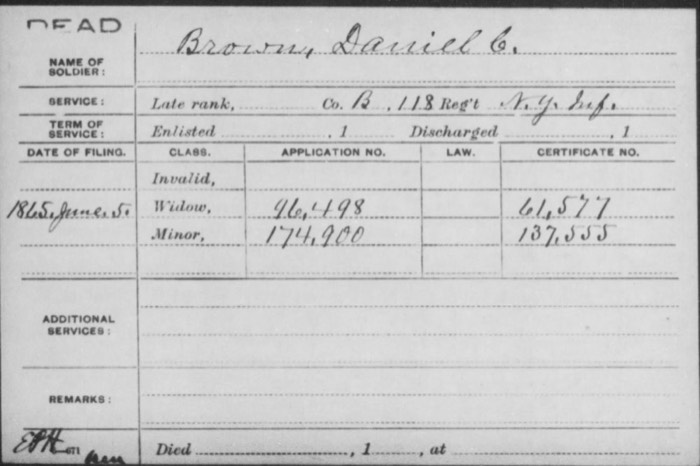 DEAD
NAME OF SOLDIER: Brown, Daniel C.
SERVICE: Late rank, Co. B, 118 Reg't N.Y. Inf.
TERM OF SERVICE: Enlisted , 1 Discharged , 1
DATE OF FILING. CLASS. APPLICATION NO. LAW. CERTIFICATE NO.
Invalid,
1865, June. 5. Widow, 96,498 61,577
Minor, 174,900 137,555
ADDITIONAL SERVICES:
REMARKS:
Died , 1 , at